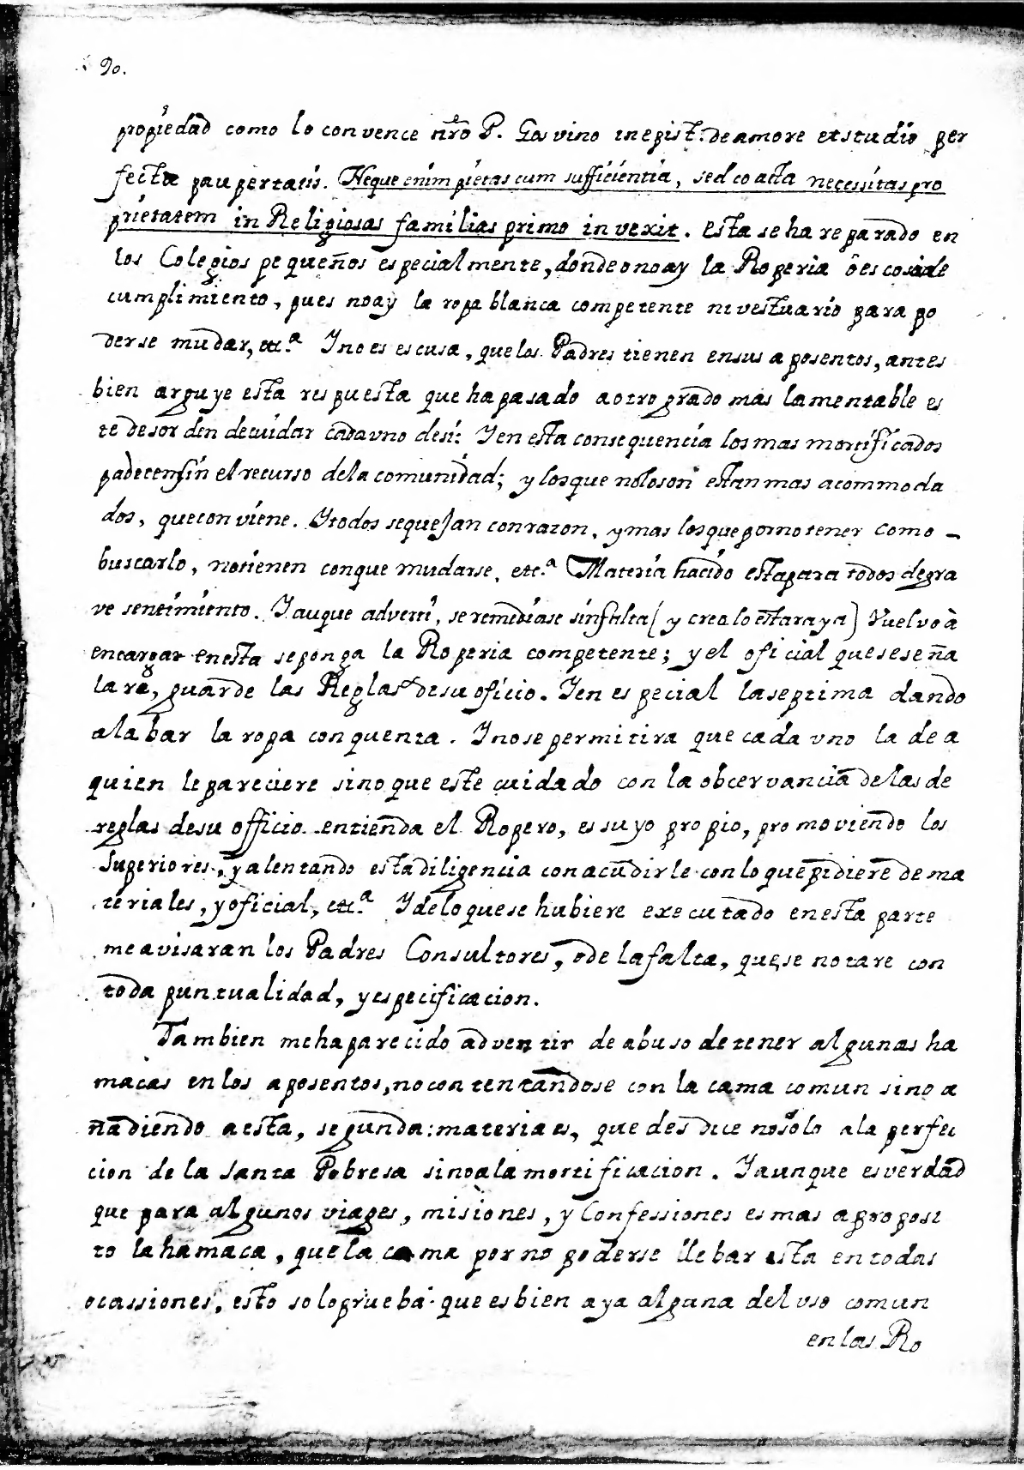 90.
propiedad como lo convence nr̃o P. Gosvino in epist. de amore et studio per
fectæ paupertatis. Neque enim pietas cum sufficientia, sed coacta necessitas pro
prietatem in Religiosas familias primo invexit. esta se ha reparado en
los Colegios pequeños especialmente, donde o no ay la Roperia ô es cosa de
cumplimiento, pues no ay la ropa blanca competente ni vestuario para po
derse mudar, etc.ª Y no es escusa, que los Padres tienen en sus aposentos, antes
bien arguye esta respuesta que ha pasado a otro grado mas lamentable es
te desorden de cuidar cada uno de si: Y en esta consequencia los mas mortificados
padecen sin el recurso de la comunidad; y los que no lo son estan mas acommoda
dos, que conviene. Y todos se quejan con razon, y mas los que por no tener como
buscarlo, no tienen con que mudarse, etc.ª Materia ha cido esta para todos de gra
ve sentimiento. Y auque adverti, se remediase sin falta (y creo lo estara ya) Vuelvo à
encargar en esta se ponga la Roperia competente; y el oficial que se seña
lare, guarde las Reglas de su oficio. Y en especial la septima dando
a labar la ropa con quenta. Y no se permitira que cada uno la de a
quien le pareciere sino que este cuidado con la obcervancia de las de
reglas de su officio entienda el Ropero, es suyo propio, promoviendo los
Superiores, y alentando esta diligencia con acudirle con lo que pidiere de ma
teriales, y oficial, etc.ª Y de lo que se hubiere executado en esta parte
me avisaran los Padres Consultores, o de la falta, que se notare con
toda puntualidad, y especificacion.
Tambien me ha parecido adventir de abuso de tener algunas ha
macas en los aposentos, no contentandose con la cama comun sino a
ñadiendo a esta, segunda: materia es, que desdice no solo a la perfec
cion de la santa Pobresa sino a la mortificacion. Y aunque es verdad
que para algunos viages, misiones, y Confessiones es mas a proposi
to la hamaca, que la cama por no poderse llebar esta en todas
ocassiones, esto solo prueba que es bien aya alguna del uso comun
en las Ro